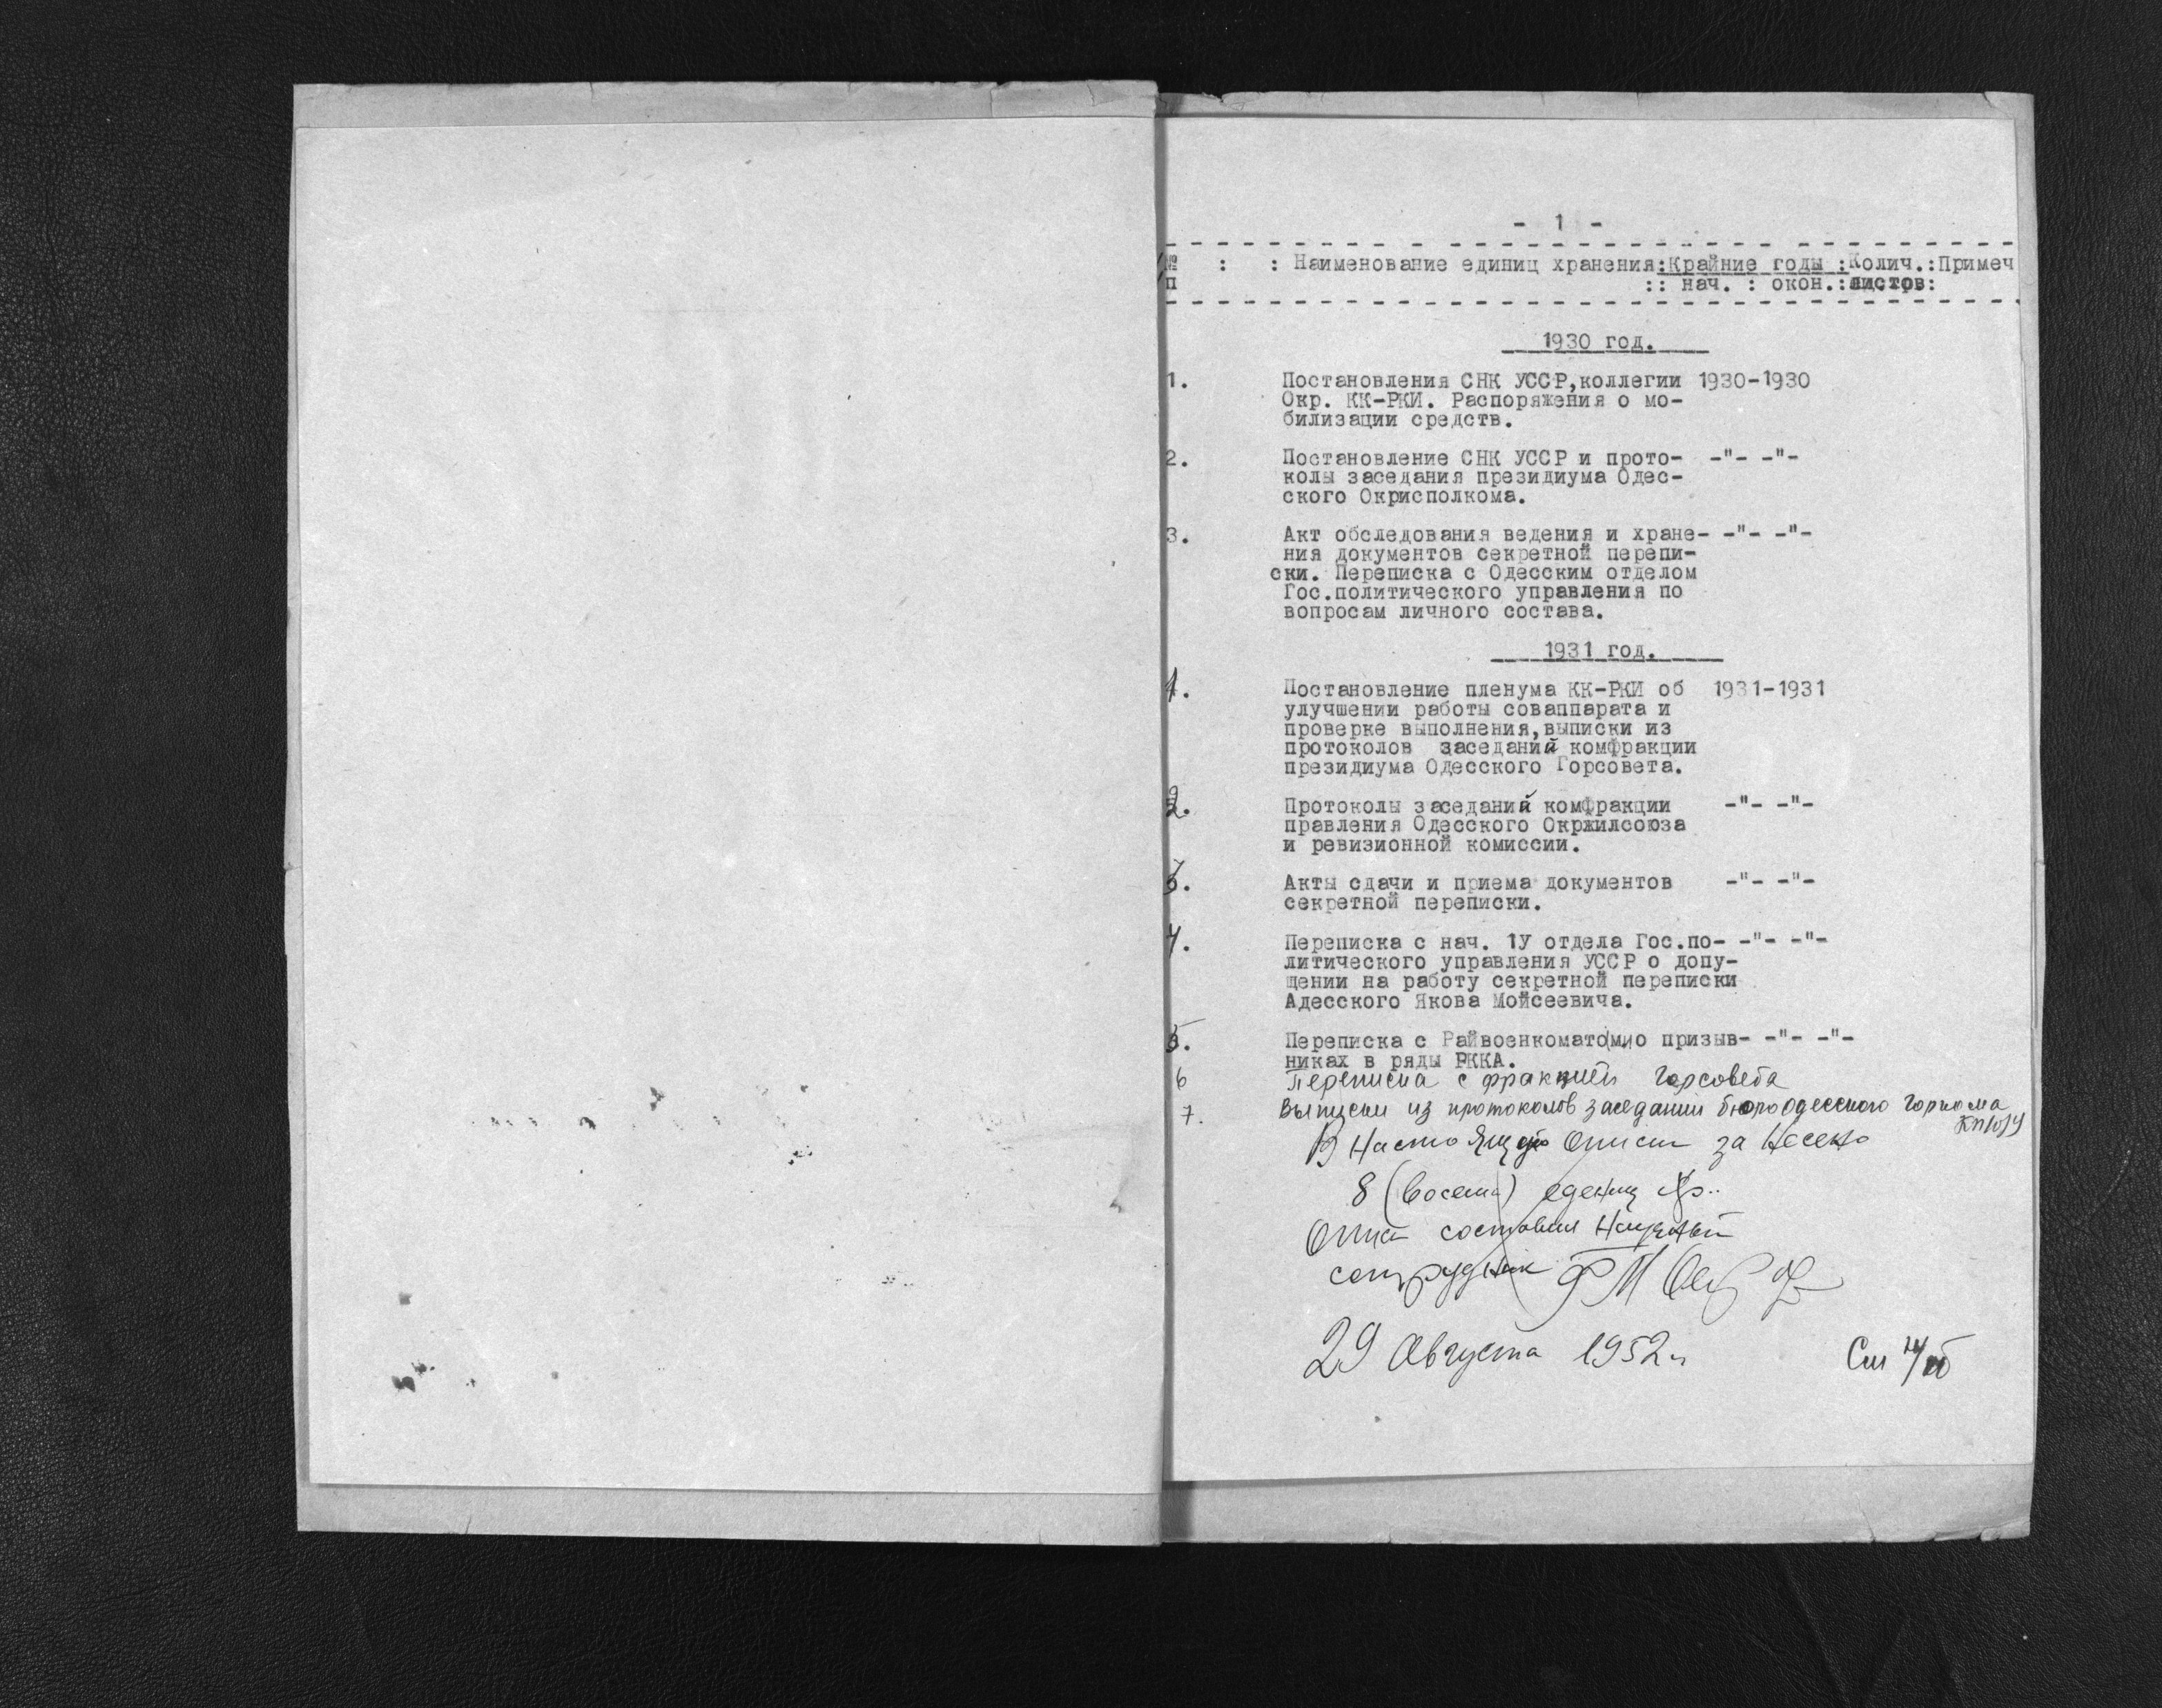 - 1 -
№ : : Наименование единиц хранения:Крайние годы :Колич.:Примеч
п :: нач. : окон.:листов:
1930 год.
1. Постановления СНК УССР,коллегии 1930-1930
Окр. КК-РКИ. Распоряжения о мо-
билизации средств.
2. Постановление СНК УССР и прото- -"- -"-
колы заседания президиума Одес-
ского Окрисполкома.
3. Акт обследования ведения и хране- -"- -"-
ния документов секретной перепи-
ски. Переписка с Одесским отделом
Гос.политического управления по
вопросам личного состава.
1931 год.
1. Постановление пленума КК-РКИ об 1931-1931
улучшении работы соваппарата и
проверке выполнения,выписки из
протоколов заседаний комфракции
президиума Одесского Горсовета.
2. Протоколы заседаний комфракции -"- -"-
правления Одесского Окржилсоюза
и ревизионной комиссии.
3. Акты сдачи и приема документов -"- -"-
секретной переписки.
4. Переписка с нач. 1У отдела Гос.по- -"- -"-
литического управления УССР о допу-
щении на работу секретной переписки
Адесского Якова Мойсеевича.
5. Переписка с Райвоенкоматом о призыв- -"- -"-
никах в ряды РККА.
6 Переписка с фракцией горсовета
7. Выписки из протоколов заседаний бюро Одесского горкома
КП/б/У
В настоящую описи за
8 (восемь) едениц хр..
Опись составил Научный
сотрудник
29 Августа 1952 г
См н/об